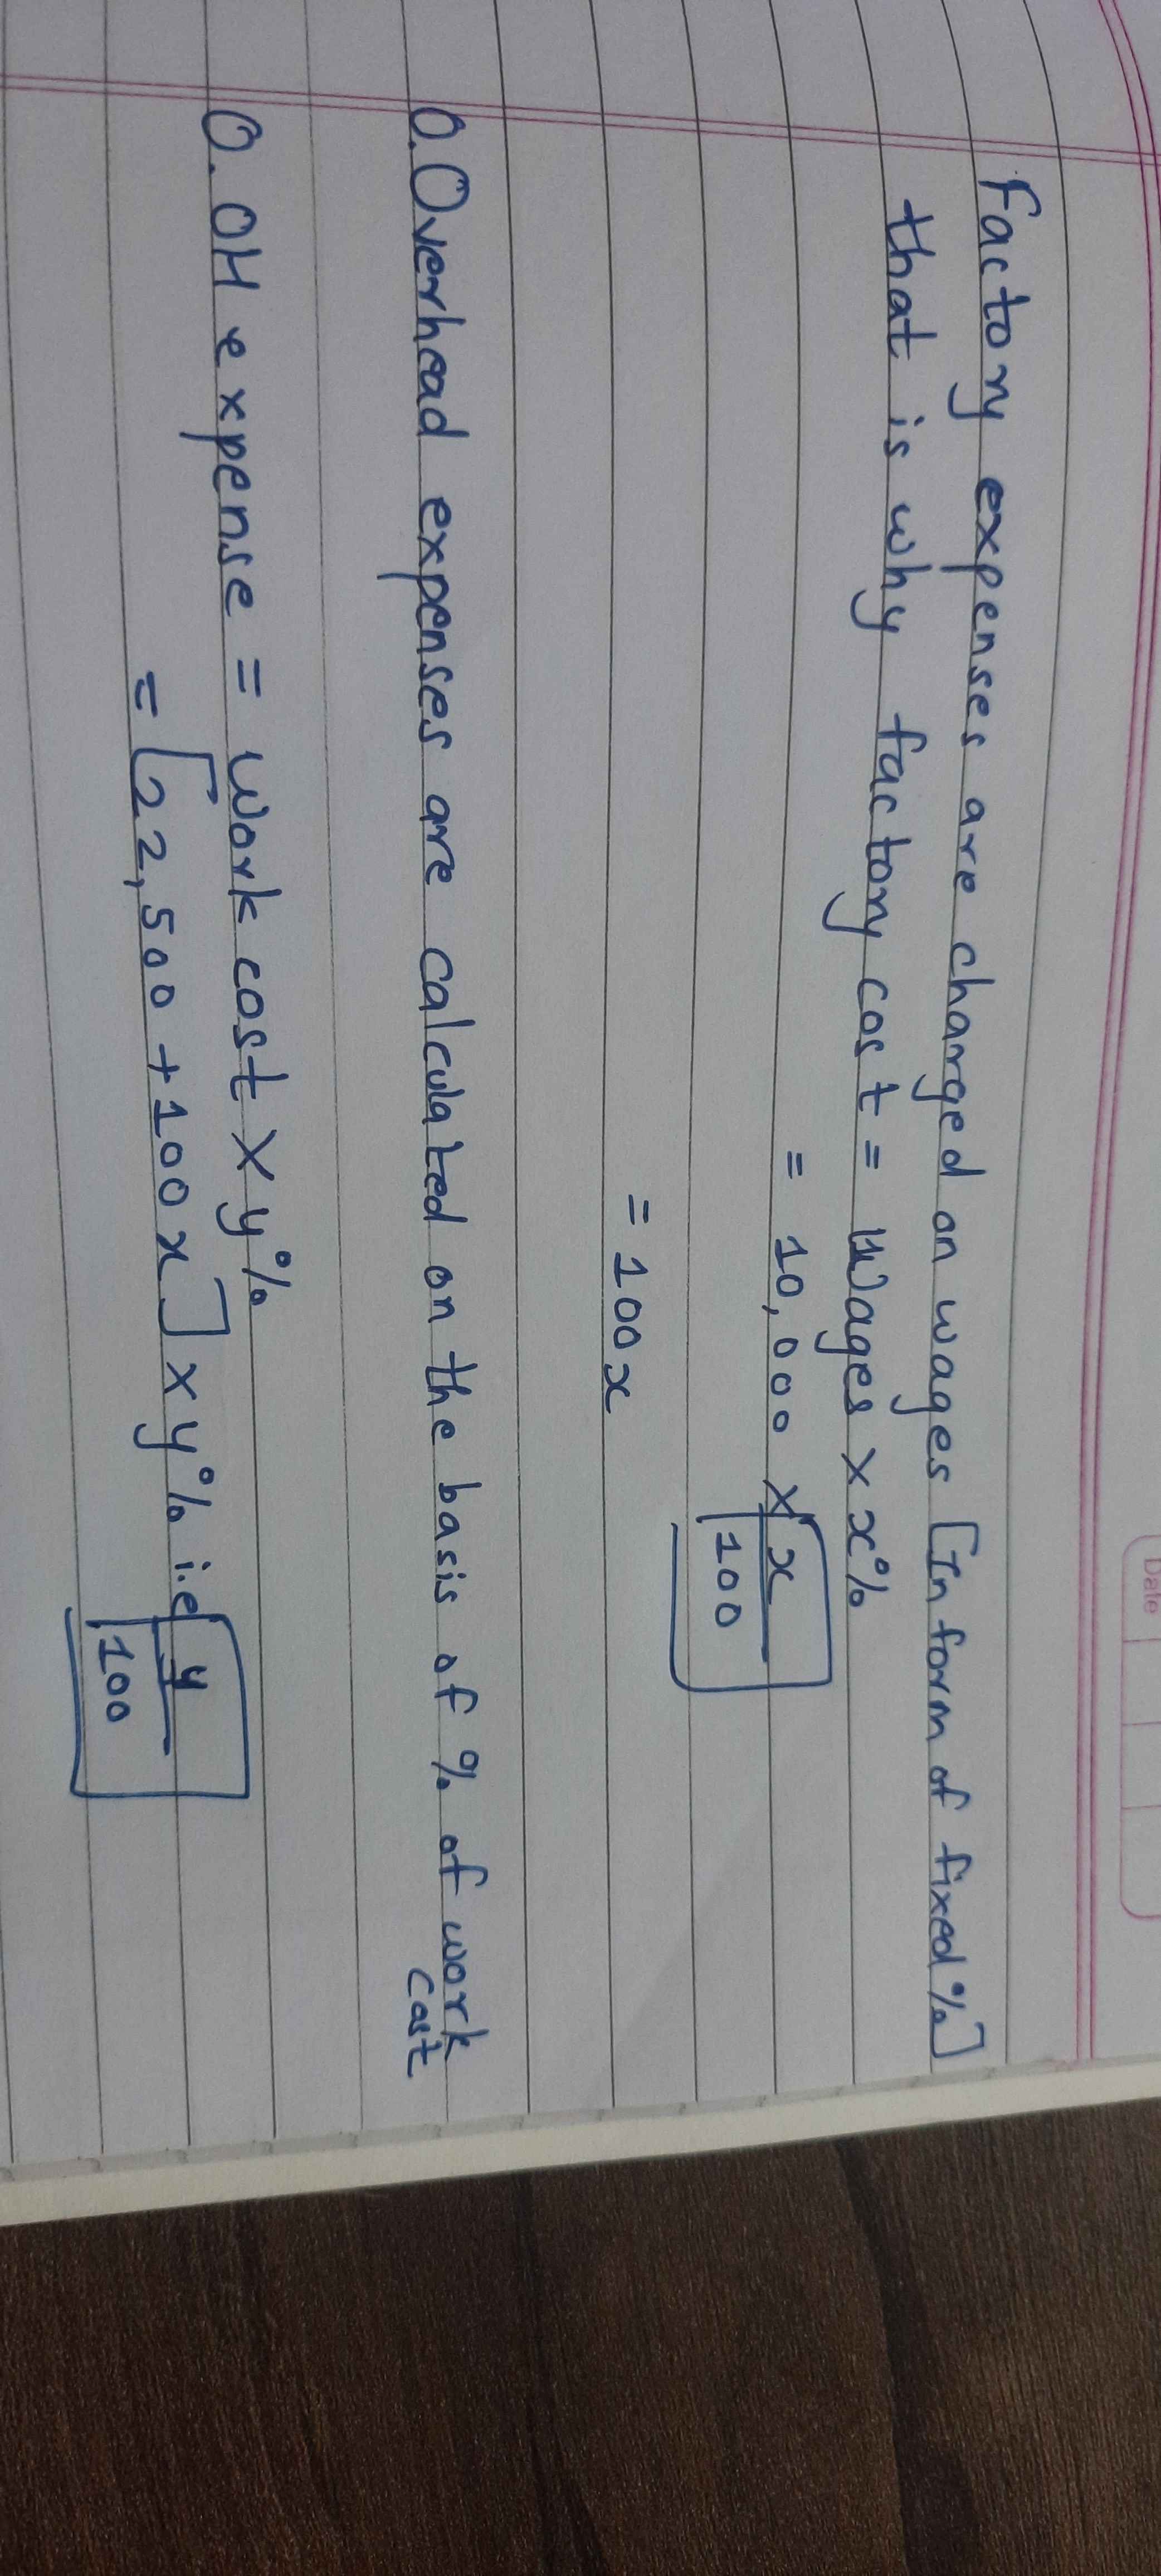 Date
Factory expenses are charged on wages [In form of fixed %]
that is why factory cost = Wages × x%
= 10,000 × x/100
= 100x
O.Overhead expenses are calculated on the basis of % of work cost
O. OH expense = work cost × y%
= [22,500 + 100x] × y% i.e y/100